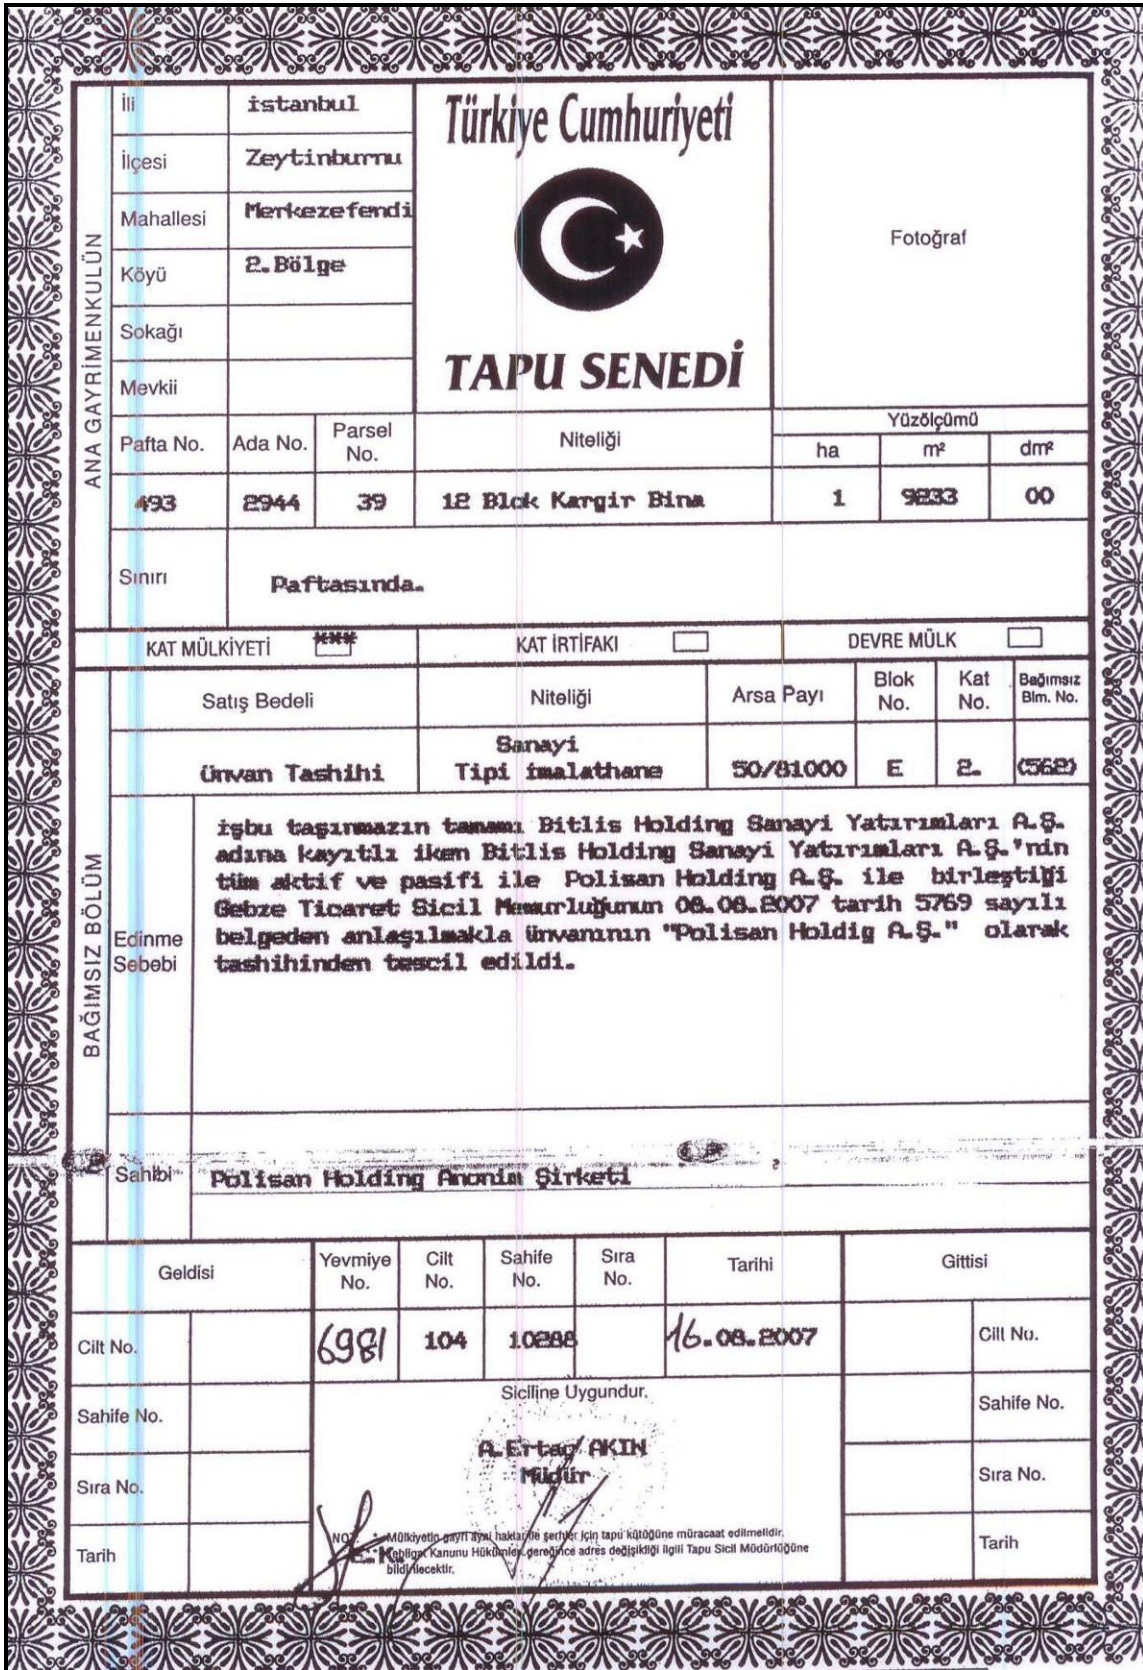 ANA GAYRİMENKULÜN
İli istanbul
İlçesi Zeytinburnu
Mahallesi Merkezefendi
Köyü 2.Bölge
Sokağı
Mevkii
Türkiye Cumhuriyeti
TAPU SENEDİ
Fotoğraf
Pafta No. Ada No. Parsel No. Niteliği Yüzölçümü
ha m² dm²
493 2944 39 12 Blok Kargir Bina 1 9233 00
Sınırı Paftasında.
KAT MÜLKİYETİ *** KAT İRTİFAKI DEVRE MÜLK
BAĞIMSIZ BÖLÜM
Satış Bedeli Niteliği Arsa Payı Blok No. Kat No. Bağımsız Blm. No.
Ünvan Tashihi Sanayi Tipi imalathane 50/81000 E 2. (562)
Edinme Sebebi
işbu taşınmazın tamamı Bitlis Holding Sanayi Yatırımları A.Ş.
adına kayıtlı iken Bitlis Holding Sanayi Yatırımları A.Ş.'nin
tüm aktif ve pasifi ile Polisan Holding A.Ş. ile birleştiği
Gebze Ticaret Sicil Memurluğunun 08.08.2007 tarih 5769 sayılı
belgeden anlaşılmakla ünvanının "Polisan Holdig A.Ş." olarak
tashihinden tescil edildi.
Sahibi Polisan Holding Anonim Şirketi
Geldisi Yevmiye No. Cilt No. Sahife No. Sıra No. Tarihi Gittisi
Cilt No. 6981 104 10288 16.08.2007 Cilt No.
Siciline Uygundur.
Sahife No. Sahife No.
A.Ertaç AKIN
Müdür
Sıra No. Sıra No.
NOT: * Mülkiyetin gayri ayni haklar ile şerhler için tapu kütüğüne müracaat edilmelidir.
E.K. Tebligat Kanunu Hükümleri gereğince adres değişikliği ilgili Tapu Sicil Müdürlüğüne
bildirilecektir.
Tarih Tarih